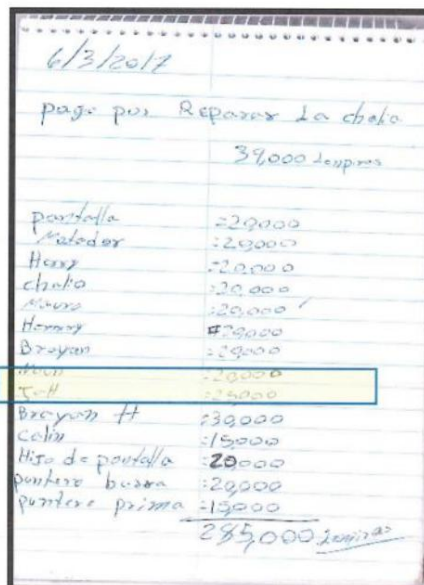 6/3/2017
pago por Reparar La chalia
39,000 Lempiras
pantalla :20,000
Matador :20,000
Henry :20,000
chalio :20,000
:20,000
:20,000
Brayan :20,000
:20,000
:25,000
Brayan H :30,000
Colin :15,000
Hijo de pantalla :20000
puntero barra :20,000
puntero prima :15,000
285,000 Lempiras